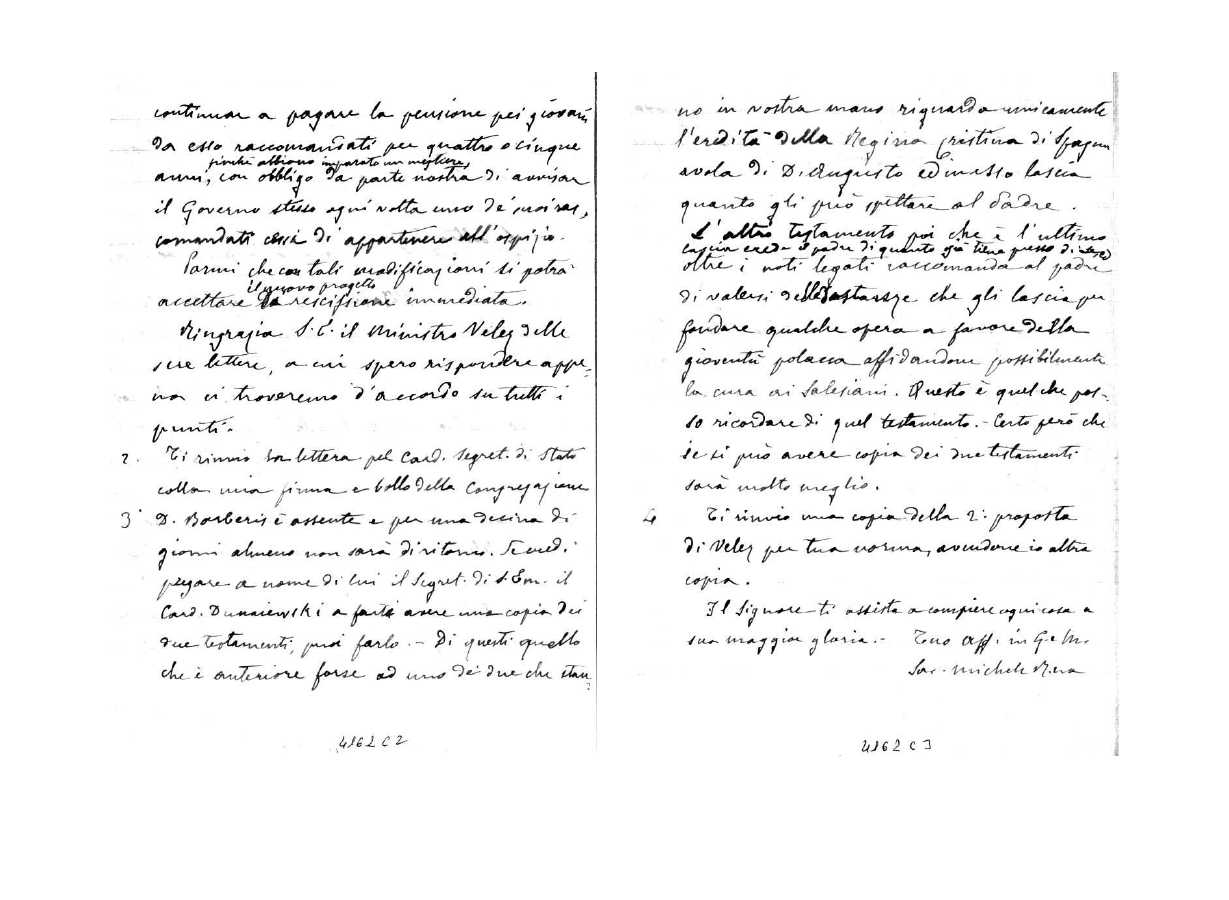 continuar a pagare la pensione pei giovani
da esso raccomandati per quattro o cinque
finchè abbiano imparato un mestiere,
anni, con obbligo da parte nostra di avvisar
il Governo stesso ogni volta uno de' suoi rac,
comandati cessi di appartenere all'ospizio.
Parmi che con tali modificazioni si potrà
il nuovo progetto
accettare la rescissione immediata.
Ringrazia S. E. il Ministro Velez delle
sue lettere, a cui spero rispondere appe-
na ci troveremo d'accordo su tutti i
punti.
2. Ti rinvio la lettera pel Card. Segret. di Stato
colla mia firma e bollo della Congregazione
3° D. Barberis è assente e per una decina di
giorni almeno non sarà di ritorno. Se credi
pregare a nome di lui il Segret. di S. Em. il
Card. Dunaiewski a farti avere una copia dei
due testamenti, puoi farlo. – Di questi quello
che è anteriore forse ad uno dei due che stan
4862 C 2
no in vostra mano riguarda unicamente
l'eredità della Regina Cristina di Spagna
avola di D. Augusto ed in esso lascia
quanto gli può spettare al Padre.
L'altro testamento poi che è l'ultimo
lascia erede il padre di quanto già tiene presso di
oltre i noti legati raccomanda al padre
di valersi che gli lascia per
fondare qualche opera a favore della
gioventù polacca affidandone possibilmente
la cura ai Salesiani. Questo è quel che pos-
so ricordare di quel testamento. – Certo però che
se si può avere copia dei due testamenti
sarà molto meglio.
4 Ti rinvio una copia della 2ª proposta
di Velez per tua norma, avendone io altra
copia.
Il Signore ti assista a compiere ogni cosa a
sua maggior gloria. – Tuo aff. in G. e M.
Sac. Michele Rua
4862 C 3